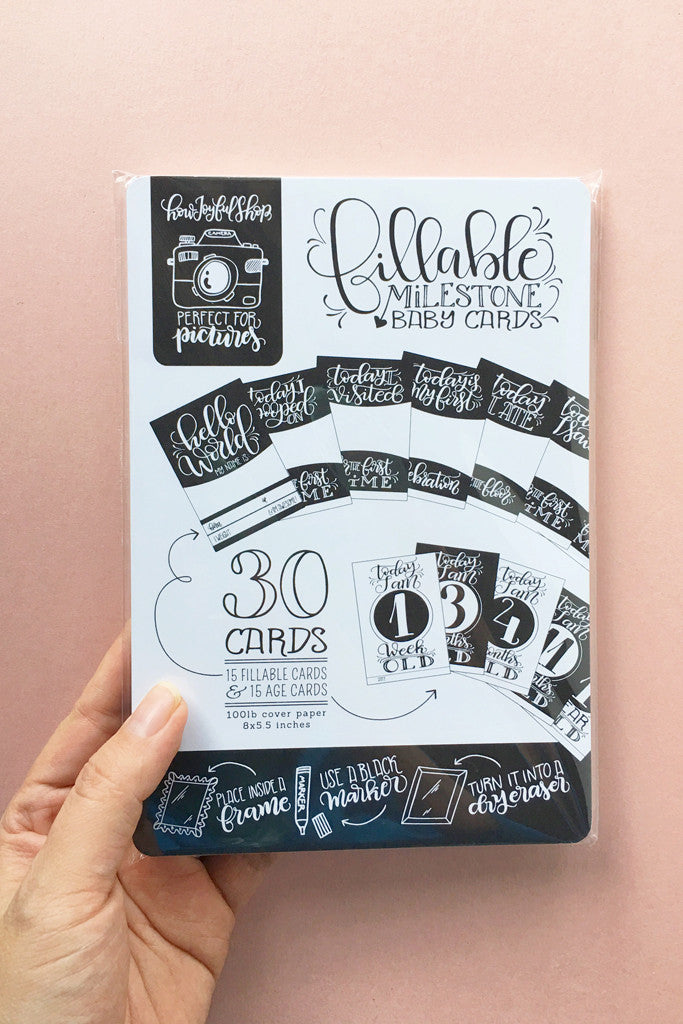 howJoyfulShop
CAMERA
PERFECT FOR
pictures
fillable
MILESTONE
BABY CARDS
hello
World
MY NAME IS
today I
pooped
ON
today I
visited
FOR THE first
TIME
today is
my first
celebration
today
I ATE
the floor
today
30
CARDS
15 FILLABLE CARDS
& 15 AGE CARDS
100lb cover paper
8x5.5 inches
today
I am
1
Week
OLD
today
I am
3
months
OLD
today
I am
4
months
OLD
today
I am
OLD
PLACE INSIDE A
frame
MARKER
USE A BLACK
marker
TURN IT INTO A
dry eraser